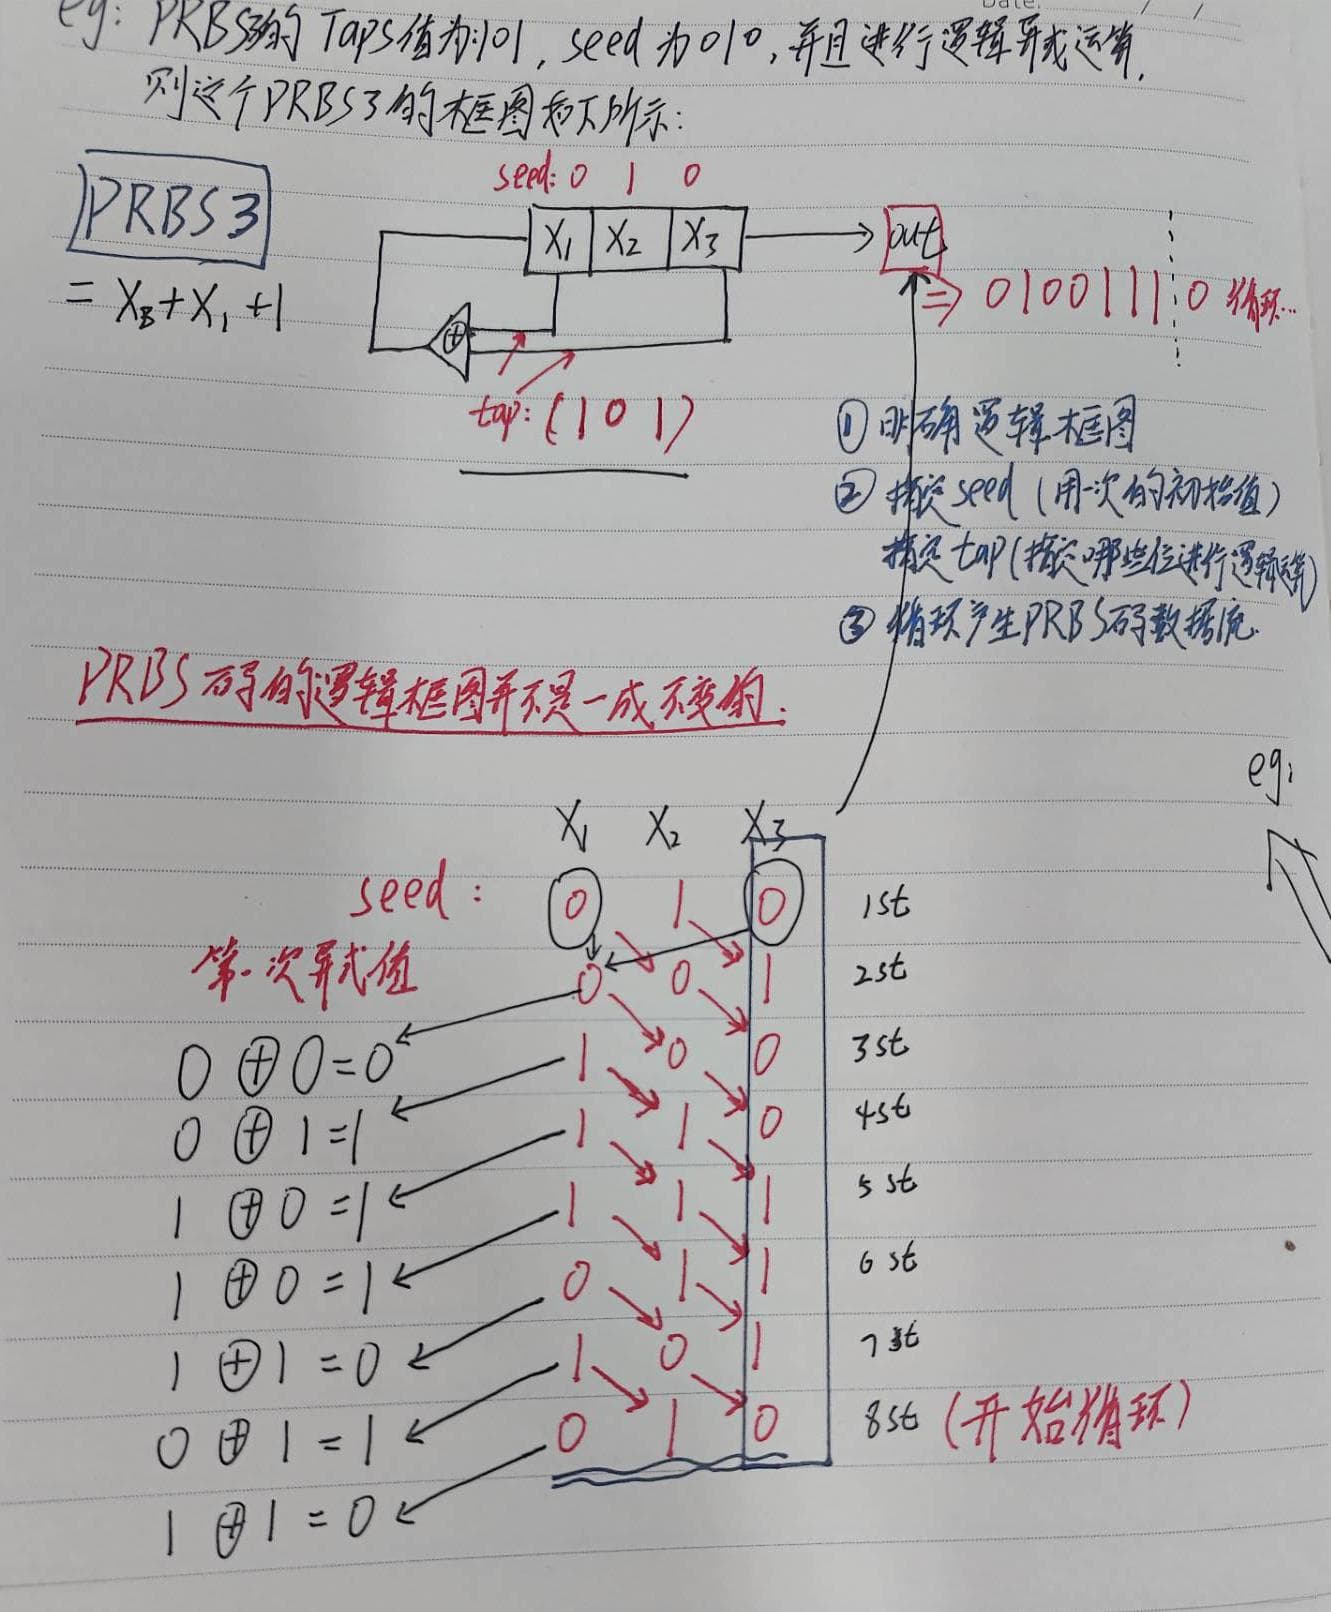 eg: PRBS3的 Taps值为:101, seed 为010, 并且进行逻辑异或运算,
则这个PRBS3的框图如下所示:
seed: 0 1 0
PRBS3
X₁ X₂ X₃
out
= X₃+X₁+1
⊕
=> 0100111 0 循环...
tap: (1 0 1)
① 明确逻辑框图
② 指定seed (用一次的初始值)
指定tap(指定哪些位进行逻辑运算)
③ 循环产生PRBS码数据流.
PRBS码的逻辑框图并不是一成不变的.
eg:
X₁ X₂ X₃
seed: 0 1 0 1st
第一次异或值 0 0 1 2st
0 ⊕ 0 = 0 1 0 0 3st
0 ⊕ 1 = 1 1 1 0 4st
1 ⊕ 0 = 1 1 1 1 5st
1 ⊕ 0 = 1 0 1 1 6st
1 ⊕ 1 = 0 1 0 1 7st
0 ⊕ 1 = 1 0 1 0 8st (开始循环)
1 ⊕ 1 = 0